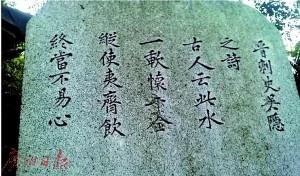 晉刺史吴隱
之詩
古人云此水
一歃懷千金
縱使夷齊飲
終當不易心
广州日报